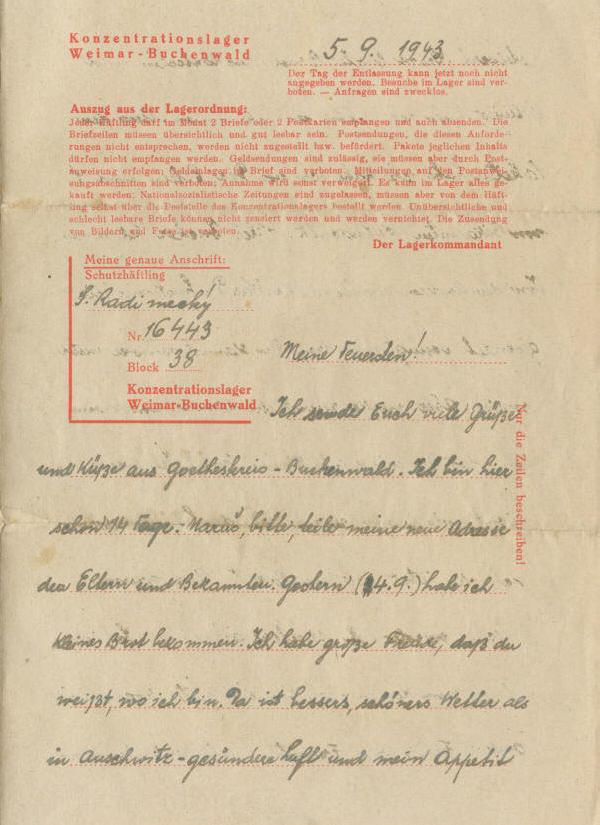 Konzentrationslager
Weimar-Buchenwald
5. 9. 1943
Der Tag der Entlassung kann jetzt noch nicht
angegeben werden. Besuche im Lager sind ver-
boten. — Anfragen sind zwecklos.
Auszug aus der Lagerordnung:
Jeder Häftling darf im Monat 2 Briefe oder 2 Postkarten empfangen und auch absenden. Die
Briefzeilen müssen übersichtlich und gut lesbar sein. Postsendungen, die diesen Anforde-
rungen nicht entsprechen, werden nicht zugestellt bzw. befördert. Pakete jeglichen Inhalts
dürfen nicht empfangen werden. Geldsendungen sind zulässig, sie müssen aber durch Post-
anweisung erfolgen; Geldeinlagen im Brief sind verboten. Mitteilungen auf den Postanwei-
sungsabschnitten sind verboten; Annahme wird sonst verweigert. Es kann im Lager alles ge-
kauft werden. Nationalsozialistische Zeitungen sind zugelassen, müssen aber von dem Häft-
ling selbst über die Poststelle des Konzentrationslagers bestellt werden. Unübersichtliche und
schlecht lesbare Briefe können nicht zensiert werden und werden vernichtet. Die Zusendung
von Bildern und Fotos ist verboten.
Der Lagerkommandant
Meine genaue Anschrift:
Schutzhäftling
S. Radimecký
Nr. 16443
Block 38
Konzentrationslager
Weimar-Buchenwald
Nur die Zeilen beschreiben!
Meine Teuersten!
Ich sende Euch viele Grüße
und Küße aus Goetheskreis - Buchenwald. Ich bin hier
schon 14 Tage. Maruš, bitte, teile meine neue Adresse
den Eltern und Bekannten. Gestern (4. 9.) habe ich
kleines Brot bekommen. Ich habe große Freude, daß du
weißt, wo ich bin. Da ist bessers, schöners Wetter als
in Auschwitz - gesündere Luft und mein Appetit